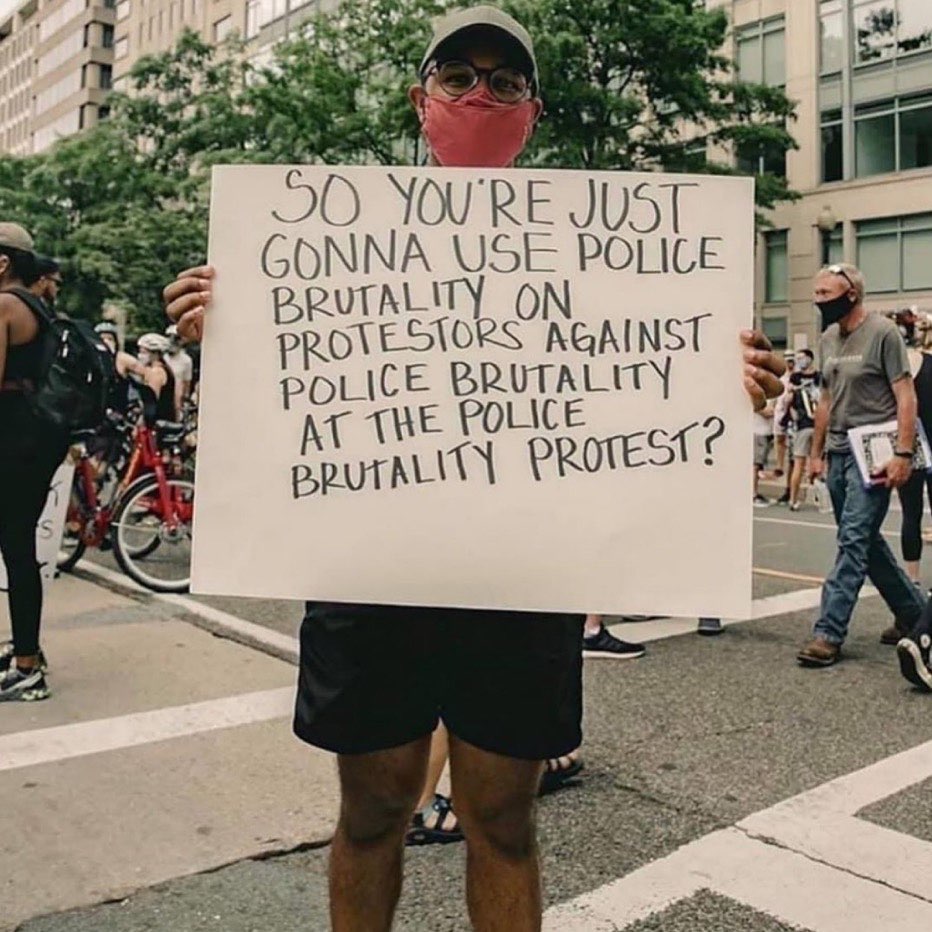 SO YOU'RE JUST
GONNA USE POLICE
BRUTALITY ON
PROTESTORS AGAINST
POLICE BRUTALITY
AT THE POLICE
BRUTALITY PROTEST?